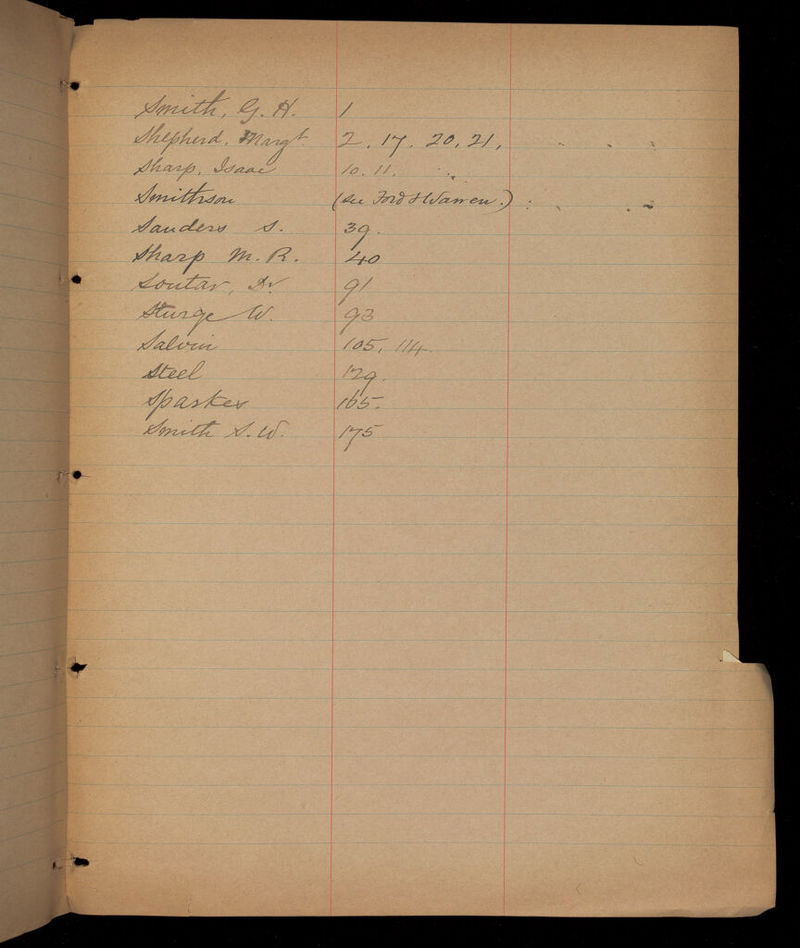 Smith, G. H. 1
Shepherd, Margt 2. 17. 20. 21.
Sharp, Isaac 10. 11.
Smithson (see Ford & Warren.)
Sanders S. 39.
Sharp M. R. 40
Soutar, Dr. 91
Sturge W. 93
Salvin 105. 114.
Steel 129.
Sparkes 165.
Smith S. W. 175